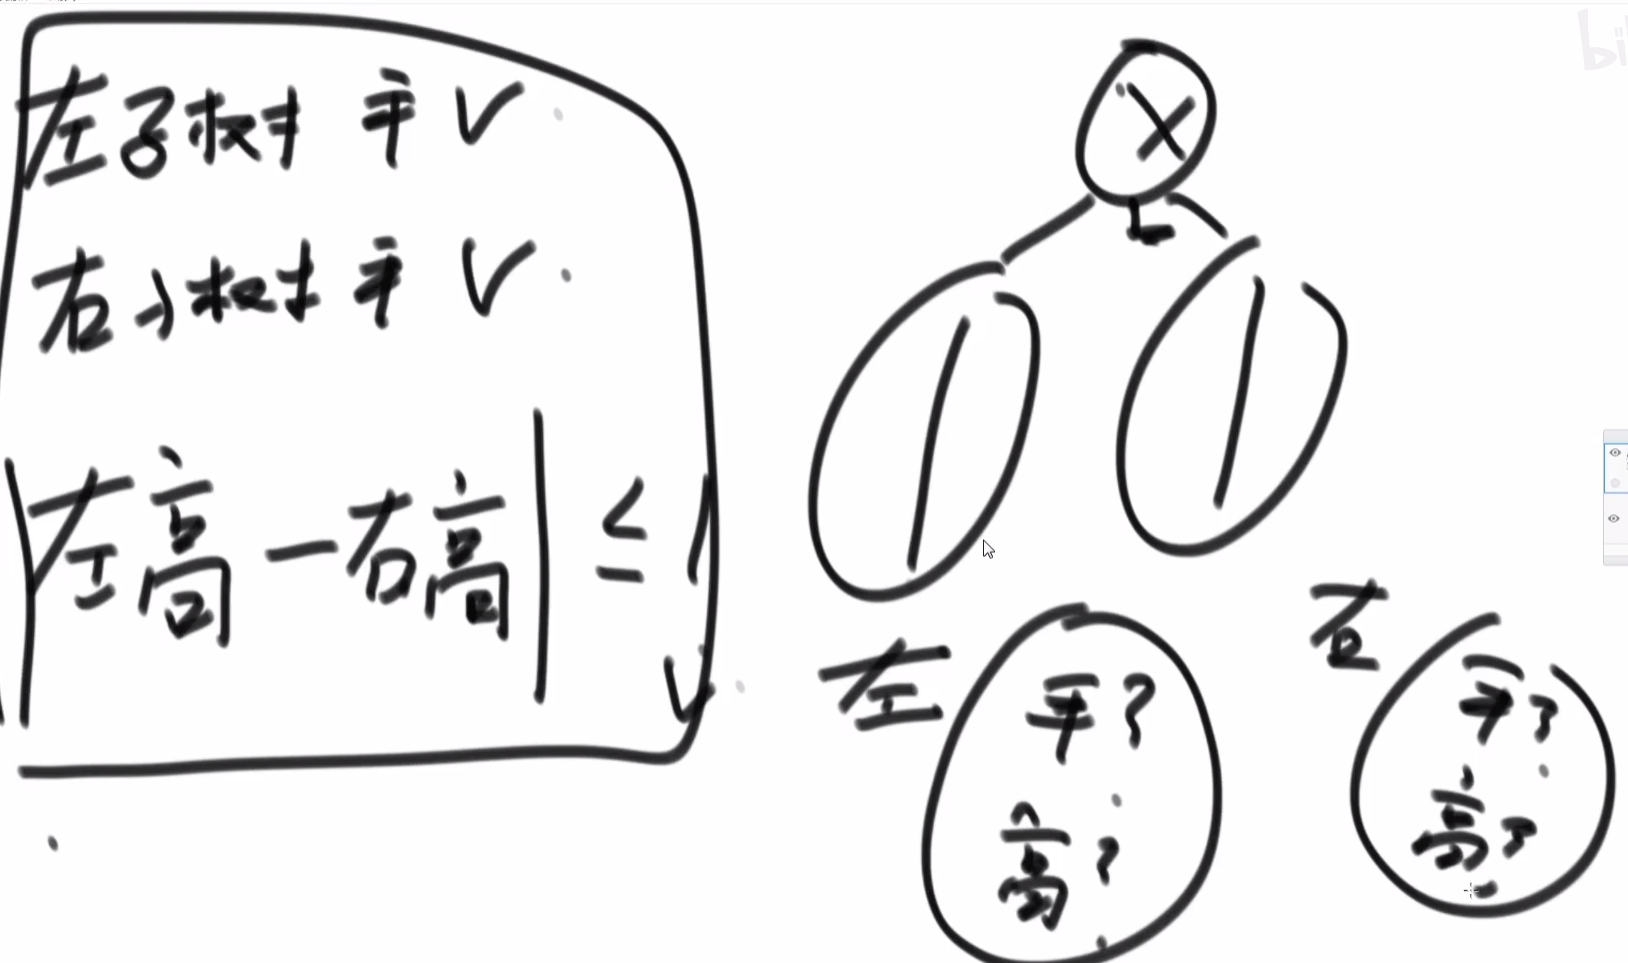 左子树 平 √
右子树 平 √
|左高-右高| ≤ 1
√
X
左
平?
高?
右
平?
高?
bi